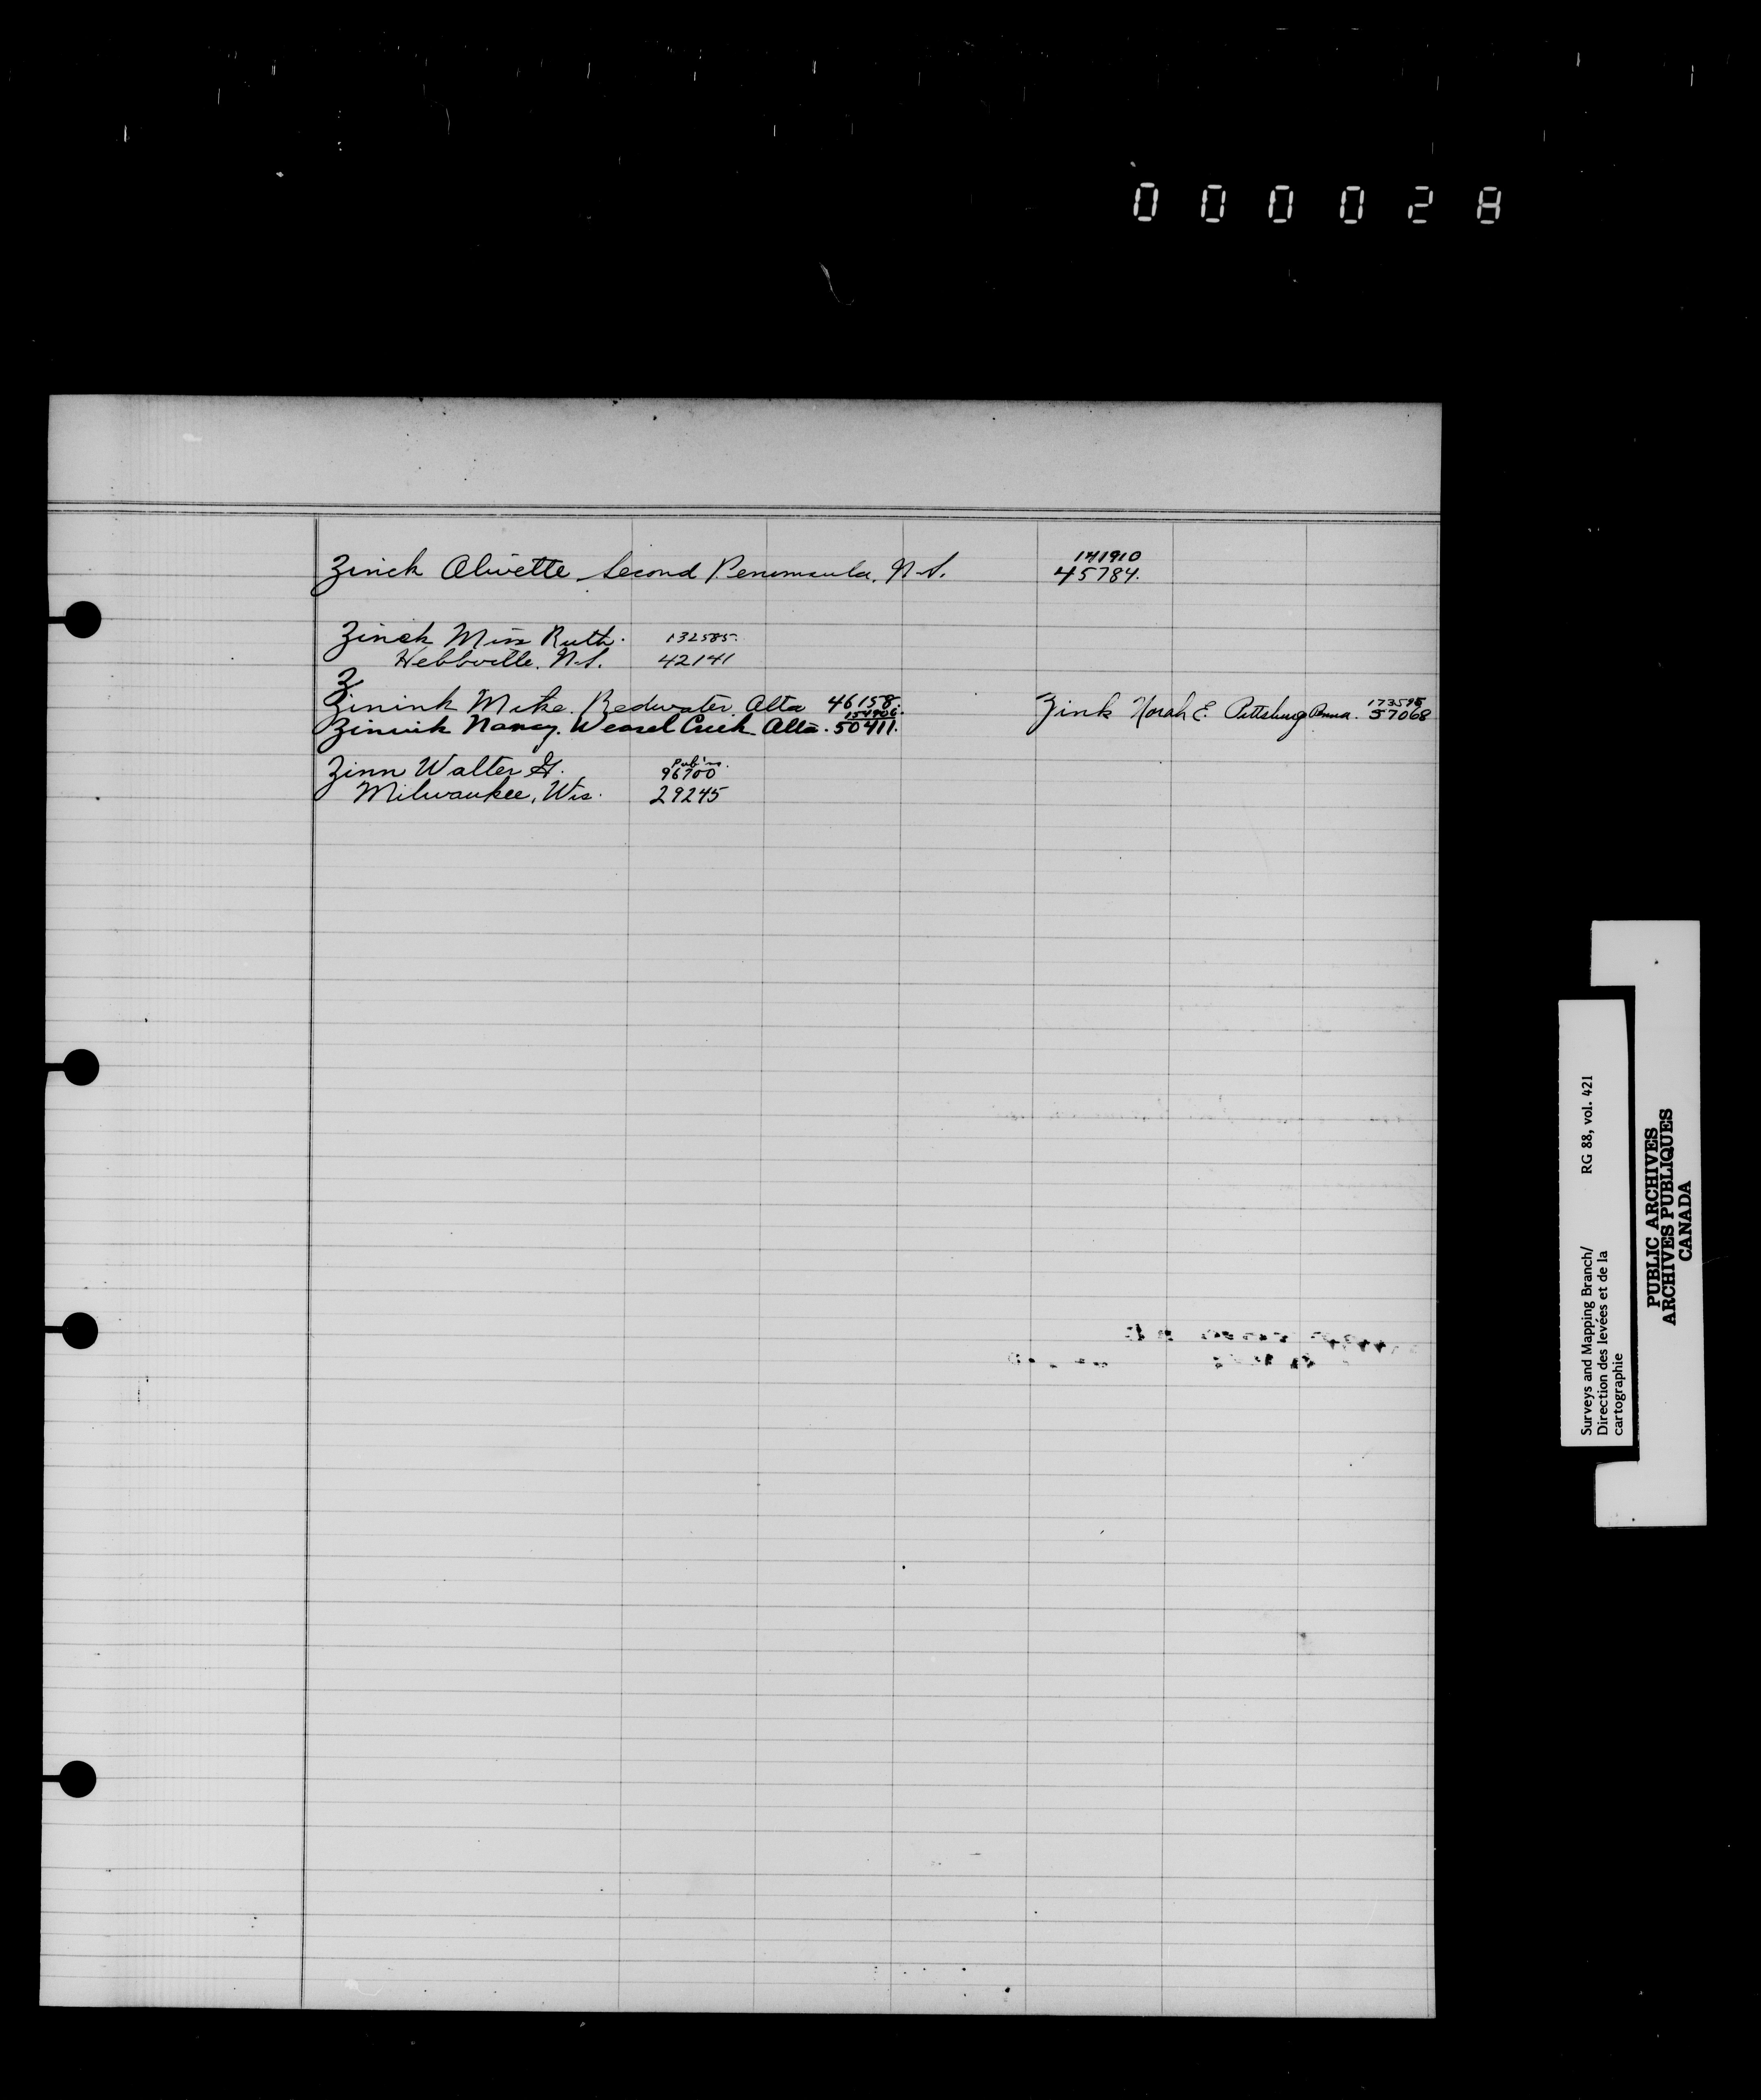 000028
Zinck Olivette Second Peninsula, N.S. 141910
45784.
Zinck Miss Ruth. 132585.
Hebbville. N.S. 42141
Z
Zinink Mike. Redwater Alta 46158.
Zink Norah E. Pittsburg Penna. 57068
Zinink Nancy. Weasel Creek Alta. 50411.
Zinn Walter H. Pub'ns.
96700
Milwaukee, Wis. 29245
Surveys and Mapping Branch/ RG 88, vol. 421
Direction des levées et de la
cartographie
PUBLIC ARCHIVES
ARCHIVES PUBLIQUES
CANADA